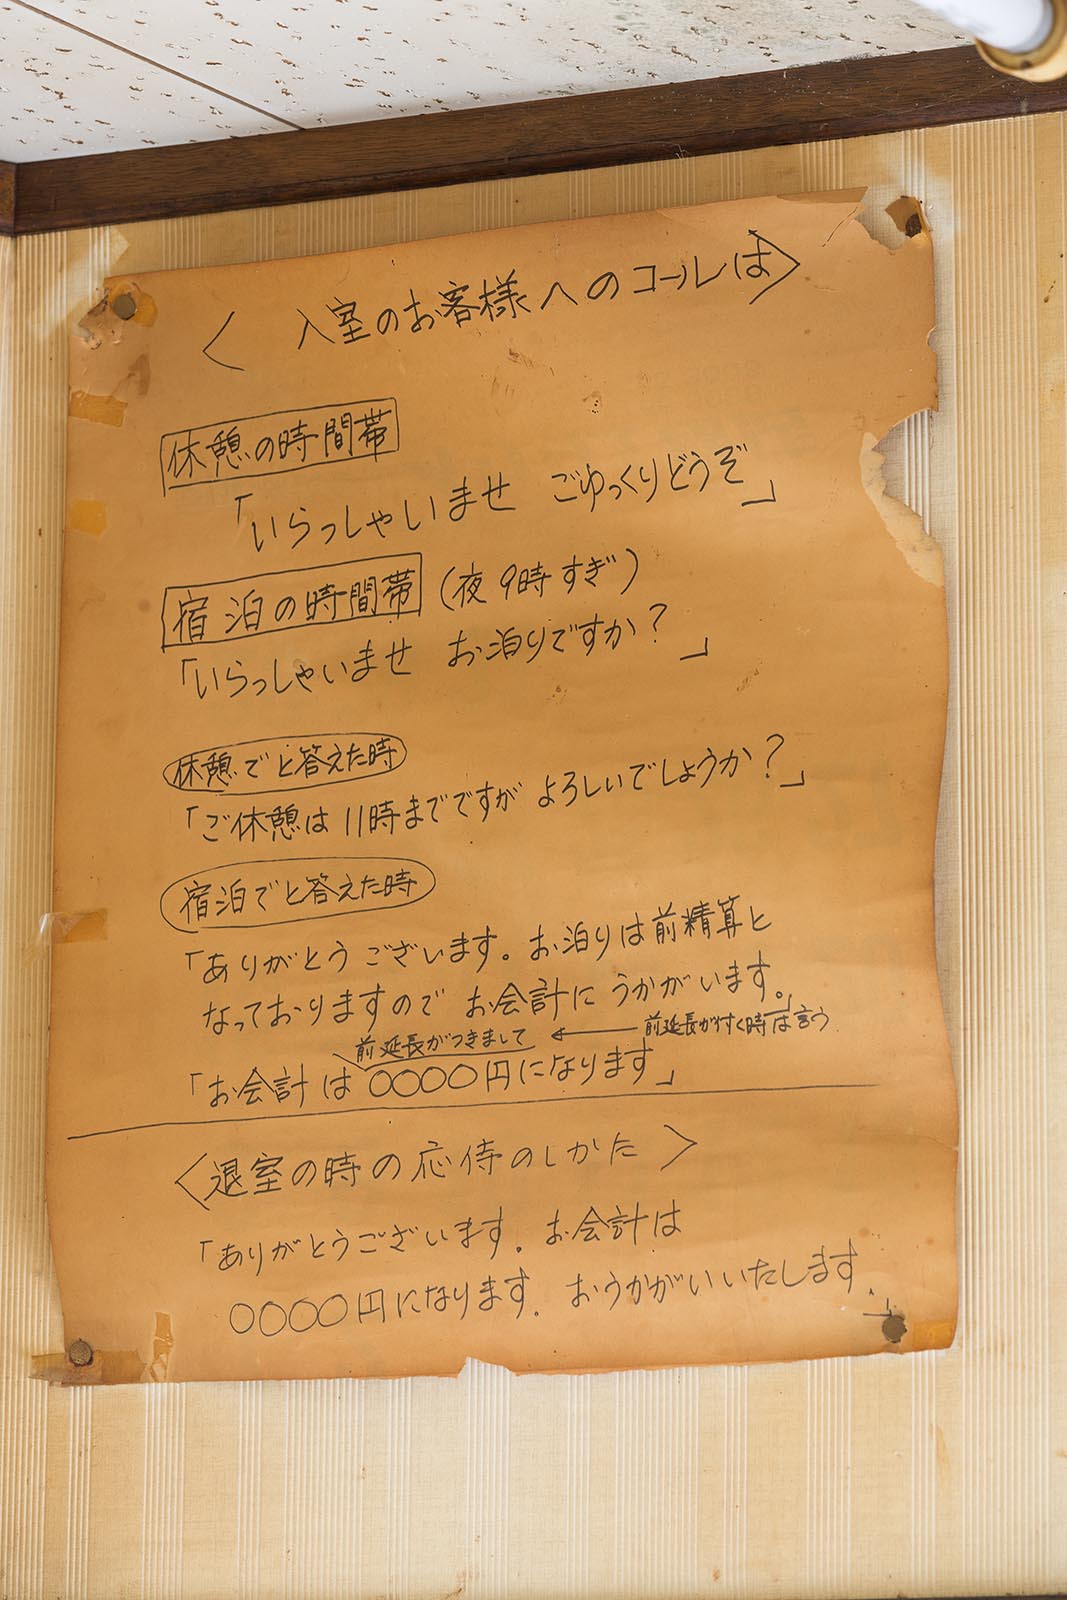 〈 入室のお客様へのコールは〉
休憩の時間帯
「いらっしゃいませ ごゆっくりどうぞ」
宿泊の時間帯 (夜9時すぎ)
「いらっしゃいませ お泊りですか？」
休憩でと答えた時
「ご休憩は11時までですが よろしいでしょうか？」
宿泊でと答えた時
「ありがとうございます。お泊りは前精算と
なっておりますので お会計に うかがいます。」
前延長がつきまして ← 前延長が付く時は言う
「お会計は 〇〇〇〇円になります」
〈退室の時の応待のしかた〉
「ありがとうございます。お会計は
〇〇〇〇円になります。おうかがいいたします。」